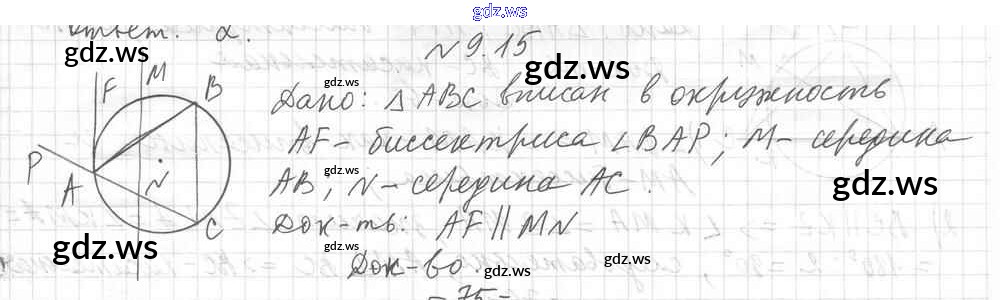 gdz.ws
Ответ: 2.
gdz.ws
N 9.15
gdz.ws
F M B
Дано: △ABC вписан в окружность
gdz.ws
P
AF - биссектриса ∠BAP; M - середина
gdz.ws
A N
AB, N - середина AC.
gdz.ws
C
Док-ть: AF || MN
gdz.ws
gdz.ws
gdz.ws
Док-во.
- 75 -